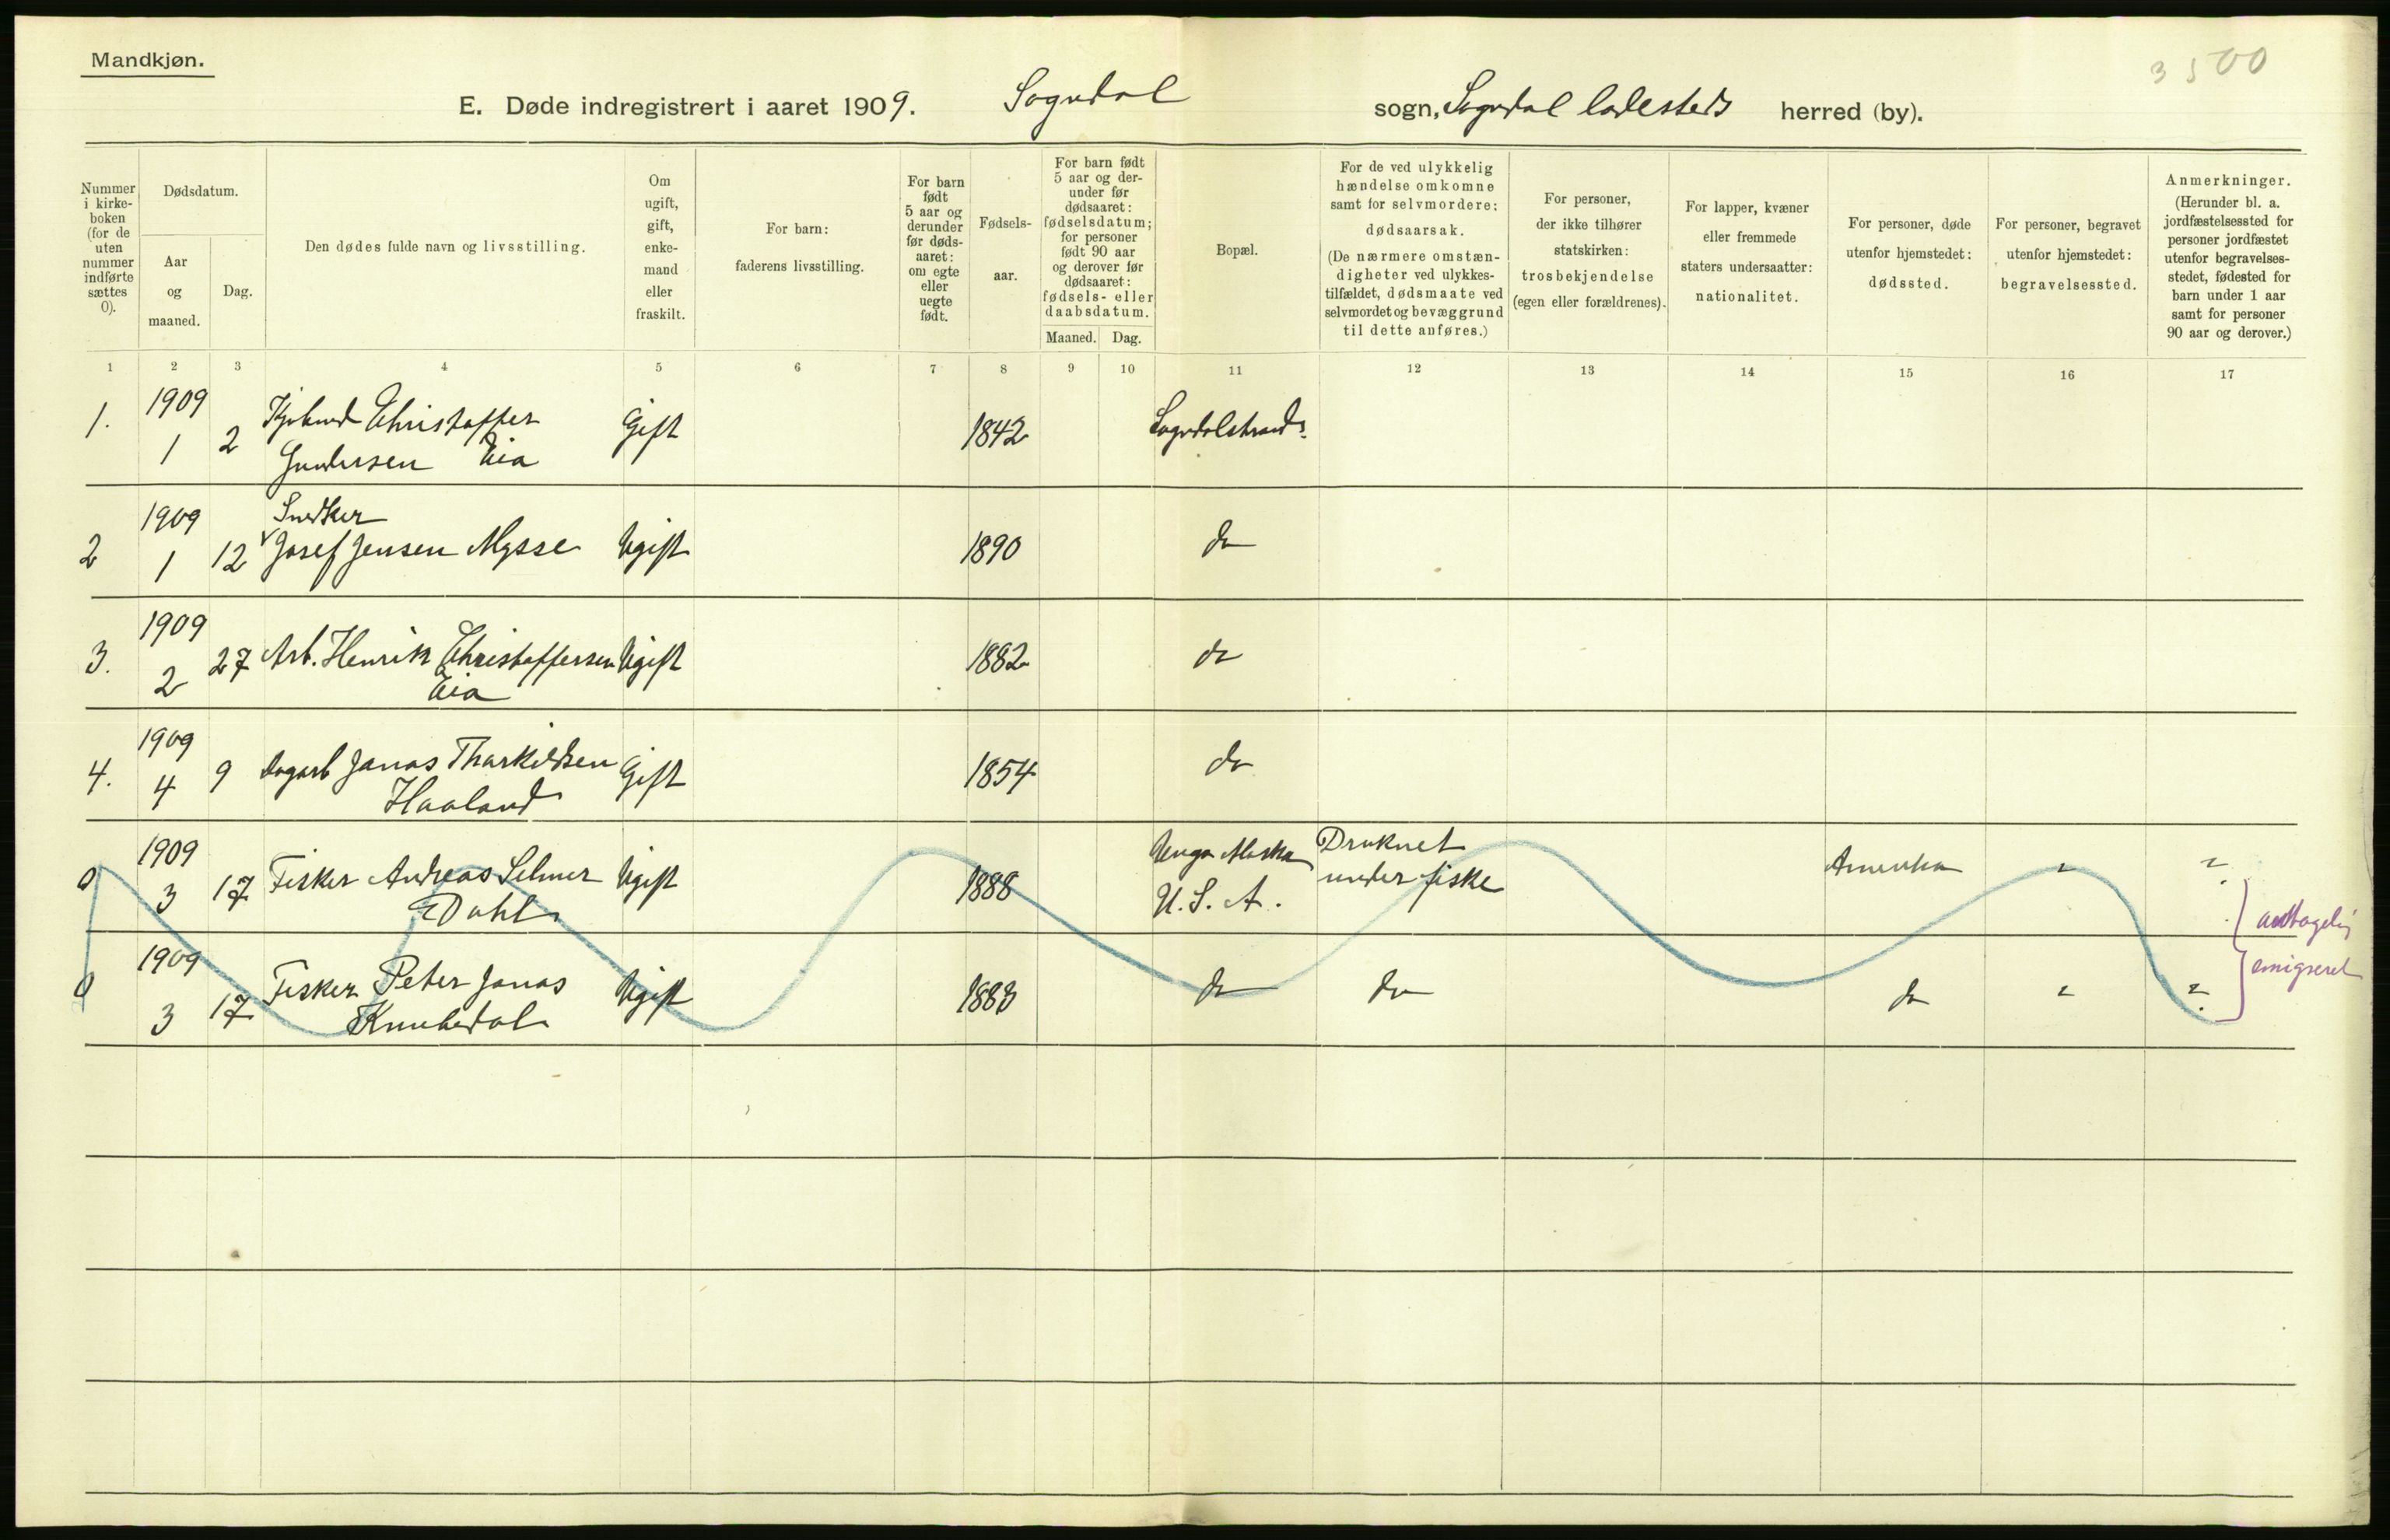 Mandkjøn.
3500
E. Døde indregistrert i aaret 1909. Sogndal sogn, Sogndal ladesteds herred (by).
Nummer i kirke-boken (for de uten nummer indførte sættes 0).
Dødsdatum.
Aar og maaned.
Dag.
Den dødes fulde navn og livsstilling.
Om ugift, gift, enke-mand eller fraskilt.
For barn: faderens livsstilling.
For barn født 5 aar og derunder før døds-aaret: om egte eller uegte født.
Fødsels-aar.
For barn født 5 aar og der-under før dødsaaret: fødselsdatum; for personer født 90 aar og derover før dødsaaret: fødsels- eller daabsdatum.
Maaned. Dag.
Bopæl.
For de ved ulykkelig hændelse omkomne samt for selvmordere: dødsaarsak. (De nærmere omstæn-digheter ved ulykkes-tilfældet, dødsmaate ved selvmordet og bevæggrund til dette anføres.)
For personer, der ikke tilhører statskirken: trosbekjendelse (egen eller forældrenes).
For lapper, kvæner eller fremmede staters undersaatter: nationalitet.
For personer, døde utenfor hjemstedet: dødssted.
For personer, begravet utenfor hjemstedet: begravelsessted.
Anmerkninger. (Herunder bl. a. jordfæstelsessted for personer jordfæstet utenfor begravelses-stedet, fødested for barn under 1 aar samt for personer 90 aar og derover.)
1 2 3 4 5 6 7 8 9 10 11 12 13 14 15 16 17
1. 1909 1 2 Christoffer Gundersen Eia Gift 1842 Sogndalstrand
2 1909 1 12 Snedker Josef Jensen Mysse Ugift 1890 do
3. 1909 2 27 Arb. Henrik Christoffersen Eia Ugift 1882 do
4. 1909 4 9 Dagarb Jonas Tharkildsen Haaland Gift 1854 do
0 1909 3 17 Fisker Andreas Selmer Dahl Ugift 1888 Unga Alaska U.S.A. Druknet under fiske Amerika "
0 1909 3 17 Fisker Peter Jonas Knubedal Ugift 1883 do do do "
antagelig
emigreret